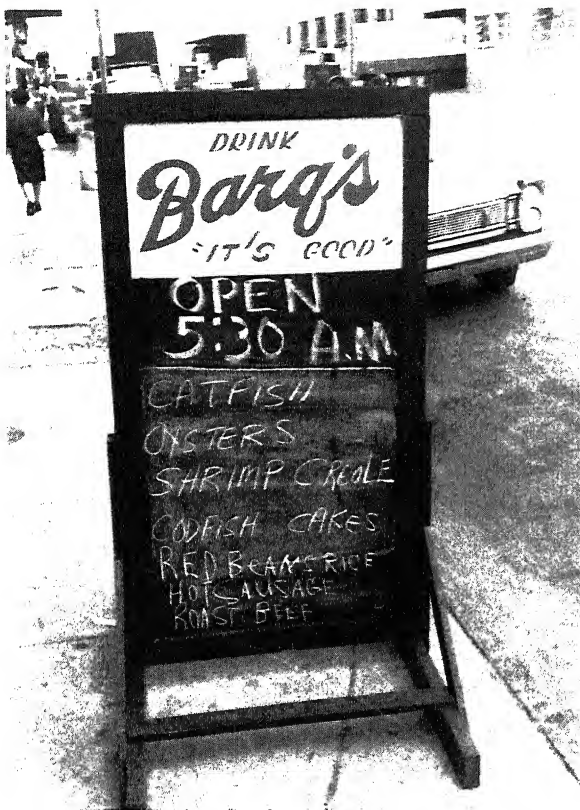 DRINK
Barq's
"IT'S GOOD"
OPEN
5:30 A.M.
CATFISH
OYSTERS
SHRIMP CREOLE
CODFISH CAKES
RED BEANS RICE
HOT SAUSAGE
ROAST BEEF